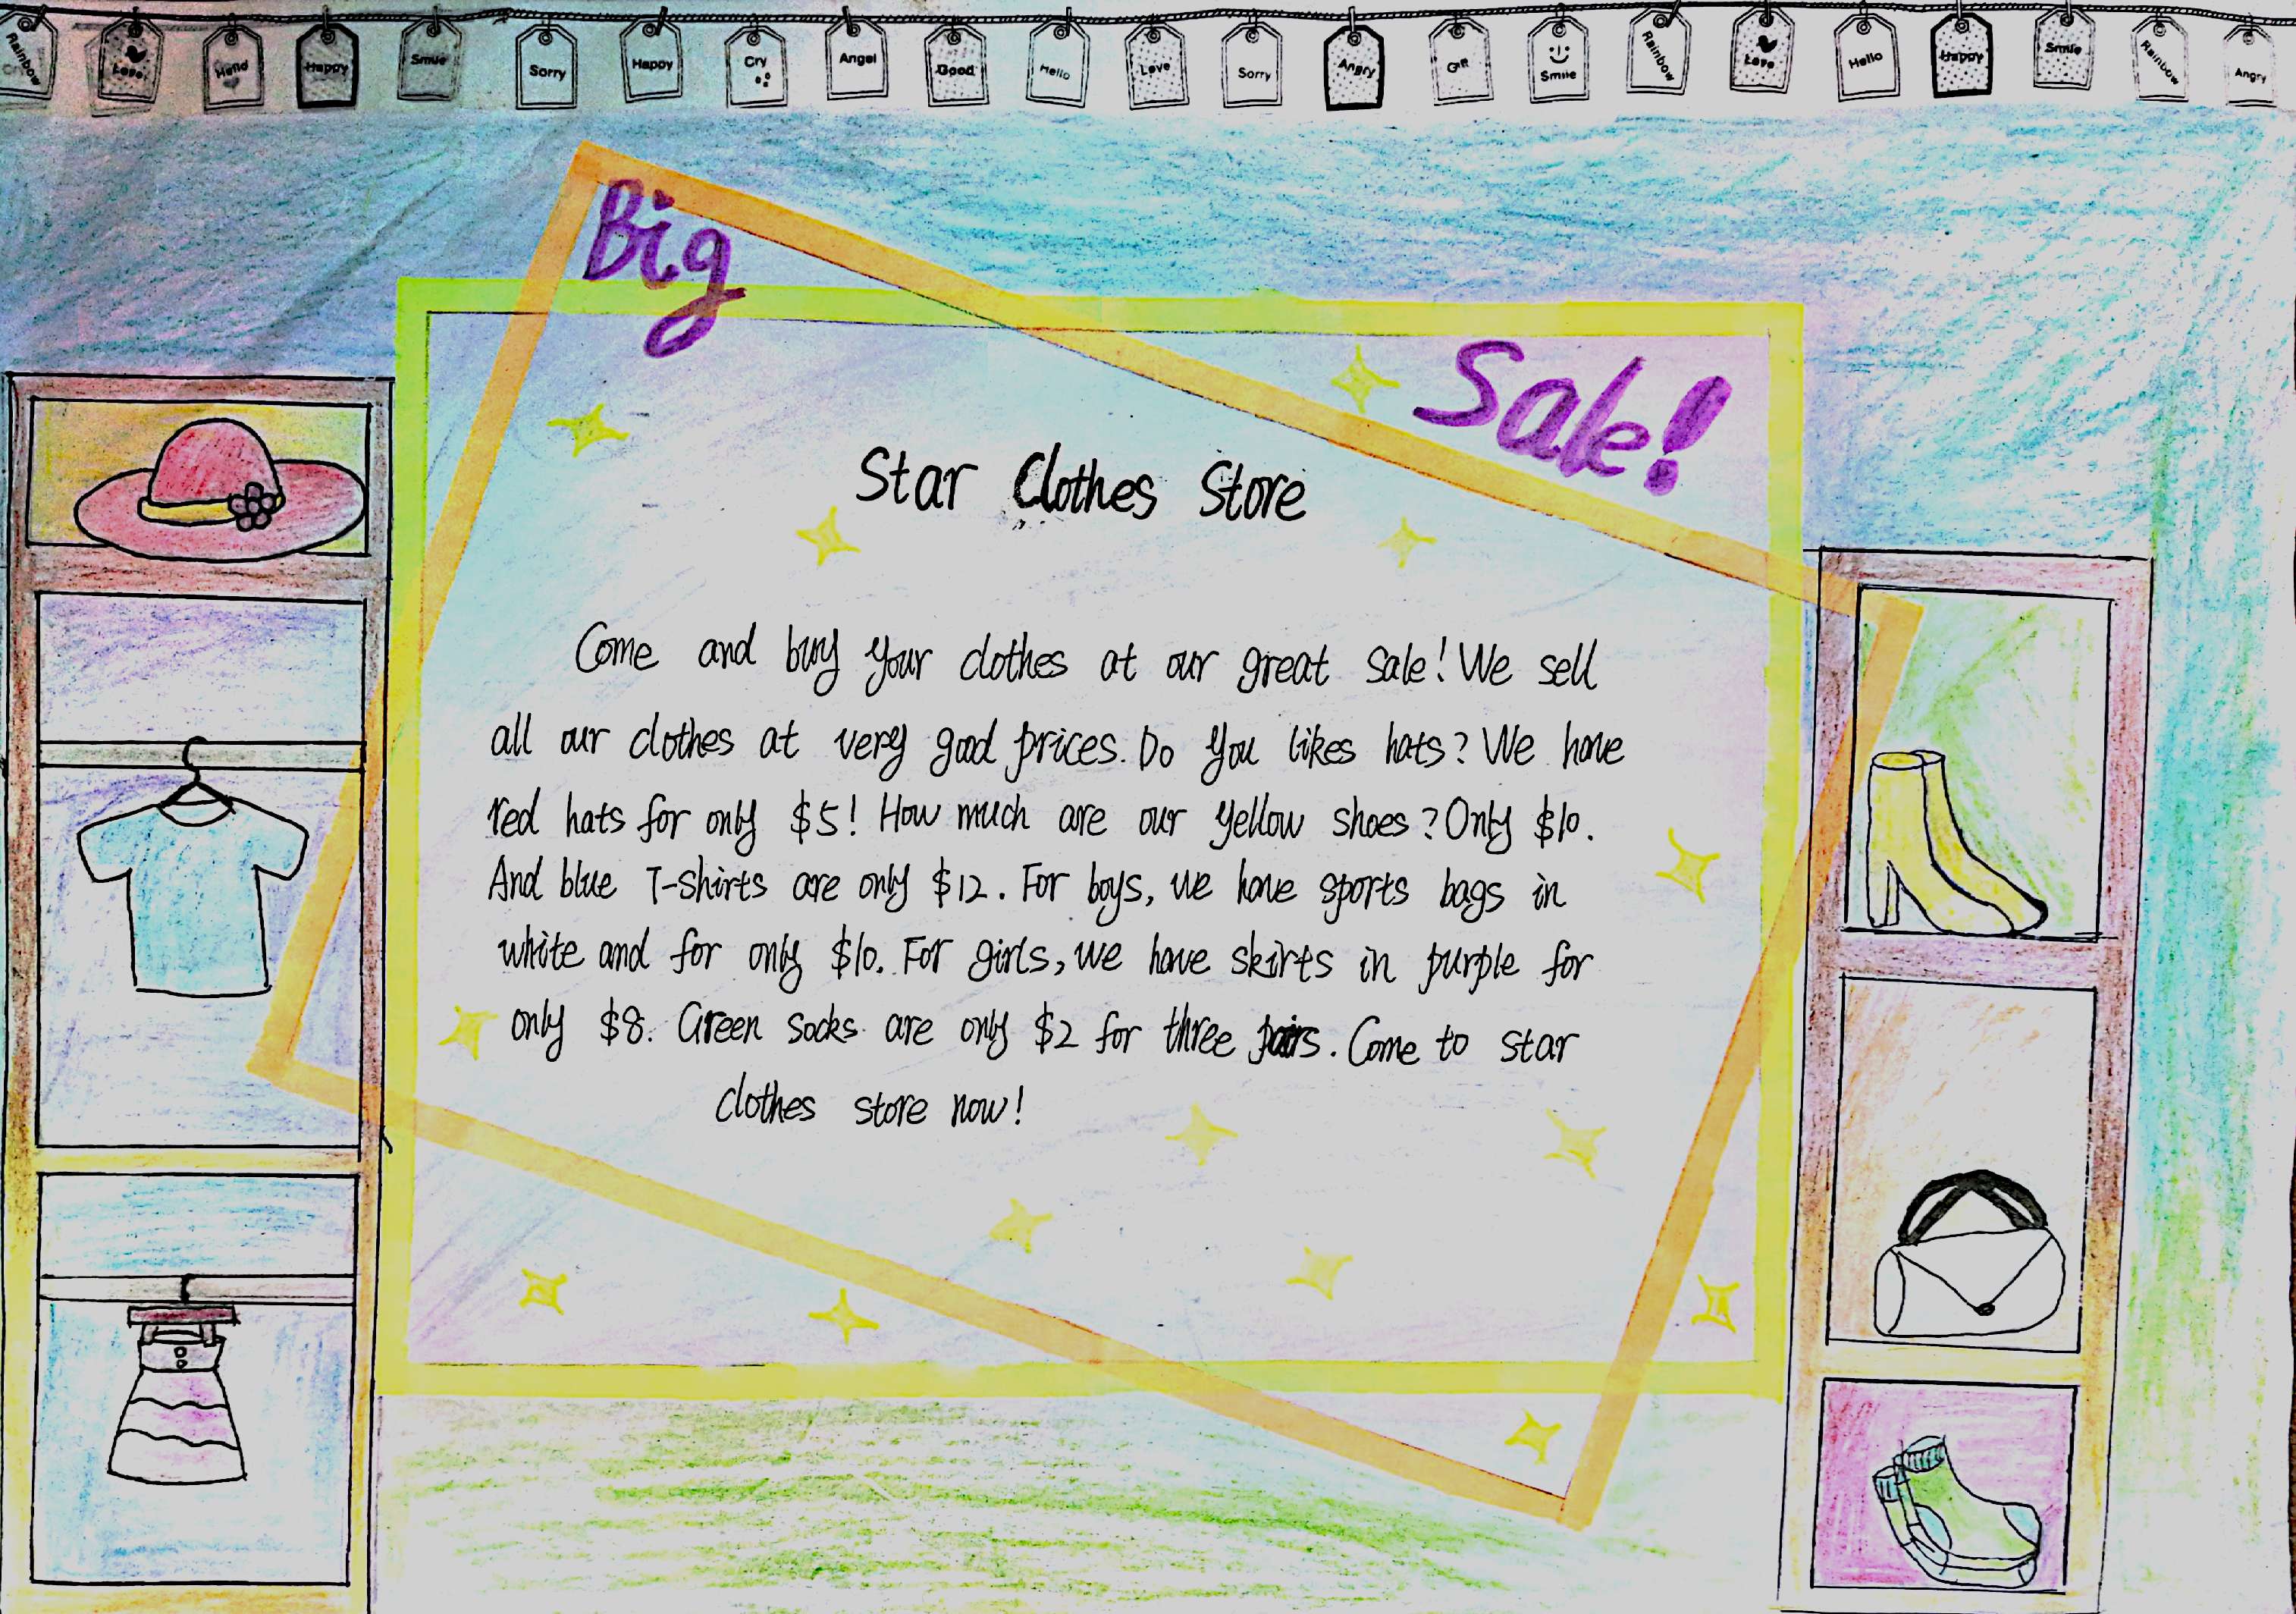 Rainbow Love Hand Happy Smile Sorry Happy Cry Angel Good Hello Love Sorry Angry Gift Smile Rainbow Love Hello Happy Smile Rainbow Angry
Big
Sale!
Star Clothes Store
Come and buy your clothes at our great sale! We sell
all our clothes at very good prices. Do you likes hats? We have
red hats for only $5! How much are our yellow shoes? Only $10.
And blue T-shirts are only $12. For boys, we have sports bags in
white and for only $10. For girls, we have skirts in purple for
only $8. Green socks are only $2 for three pairs. Come to star
clothes store now!